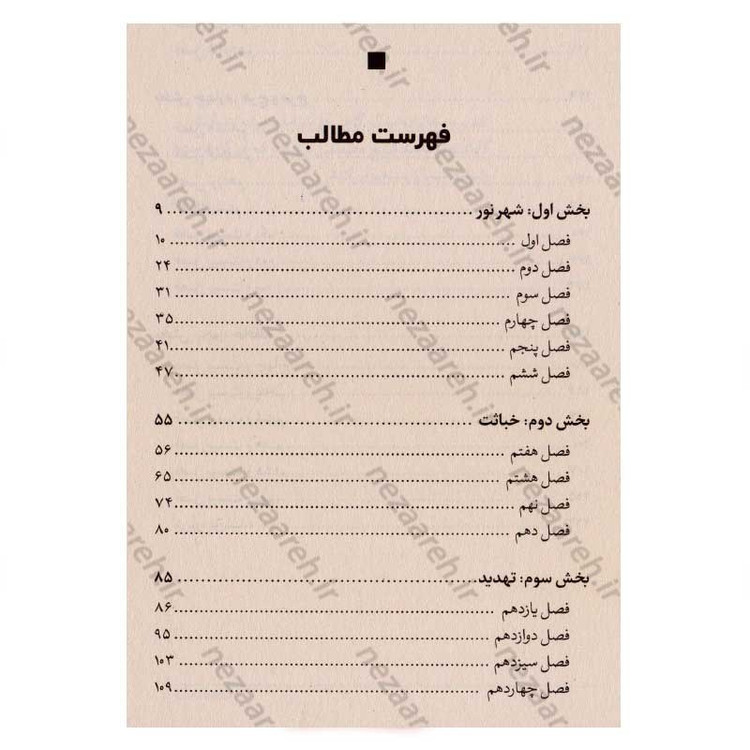 فهرست مطالب
بخش اول: شهر نور ۹
فصل اول ۱۰
فصل دوم ۲۴
فصل سوم ۳۱
فصل چهارم ۳۵
فصل پنجم ۴۱
فصل ششم ۴۷
بخش دوم: خباثت ۵۵
فصل هفتم ۵۶
فصل هشتم ۶۵
فصل نهم ۷۴
فصل دهم ۸۰
بخش سوم: تهدید ۸۵
فصل یازدهم ۸۶
فصل دوازدهم ۹۵
فصل سیزدهم ۱۰۳
فصل چهاردهم ۱۰۹
nezaareh.ir